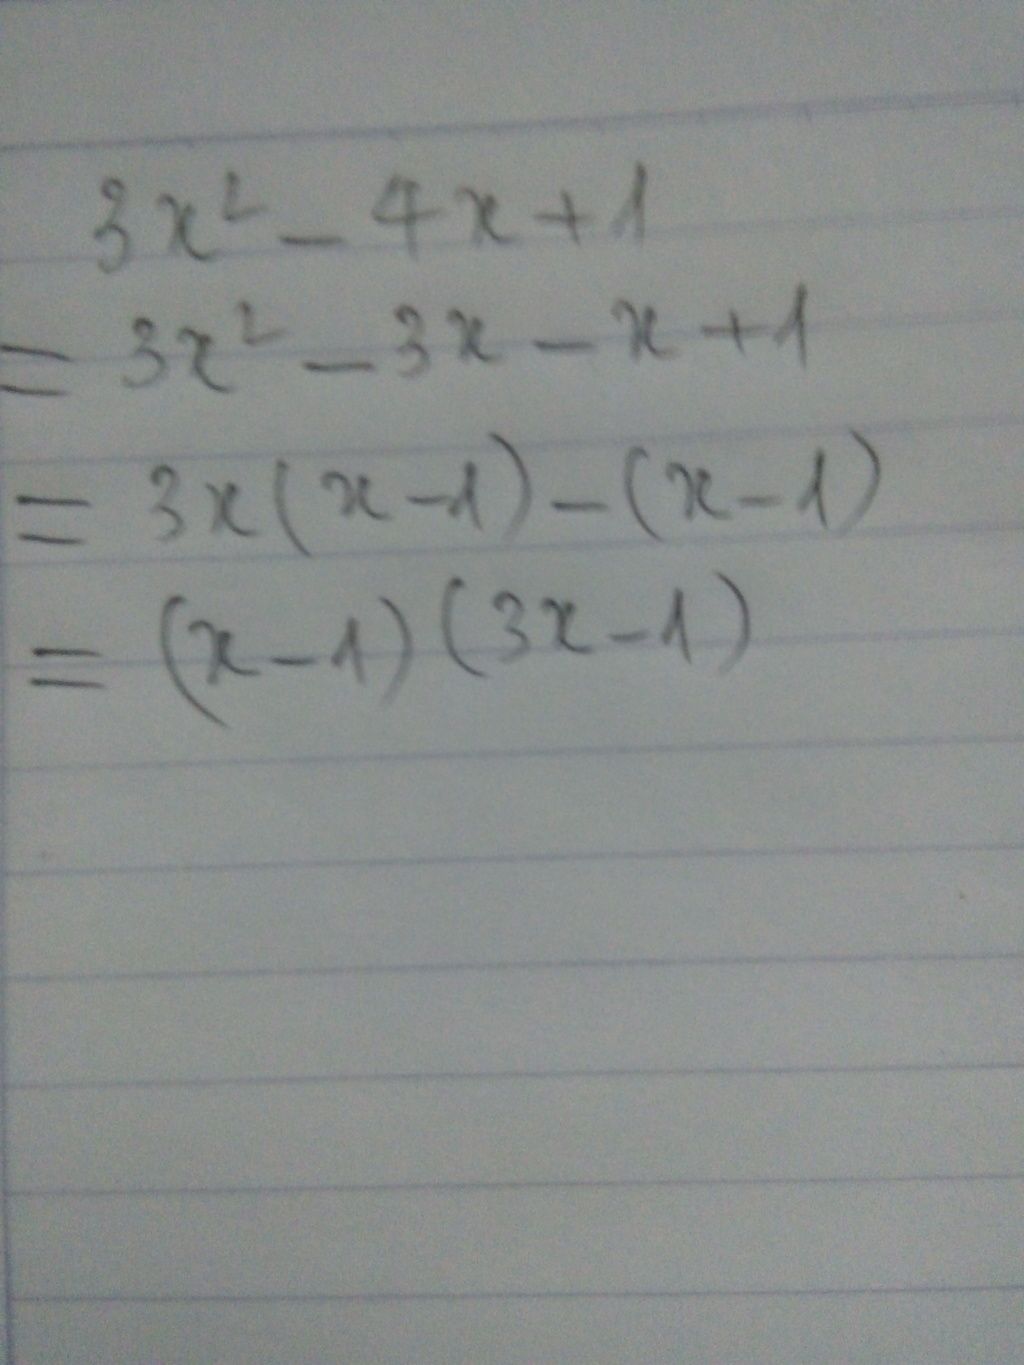 3x² - 4x + 1
= 3x² - 3x - x + 1
= 3x(x - 1) - (x - 1)
= (x - 1)(3x - 1)